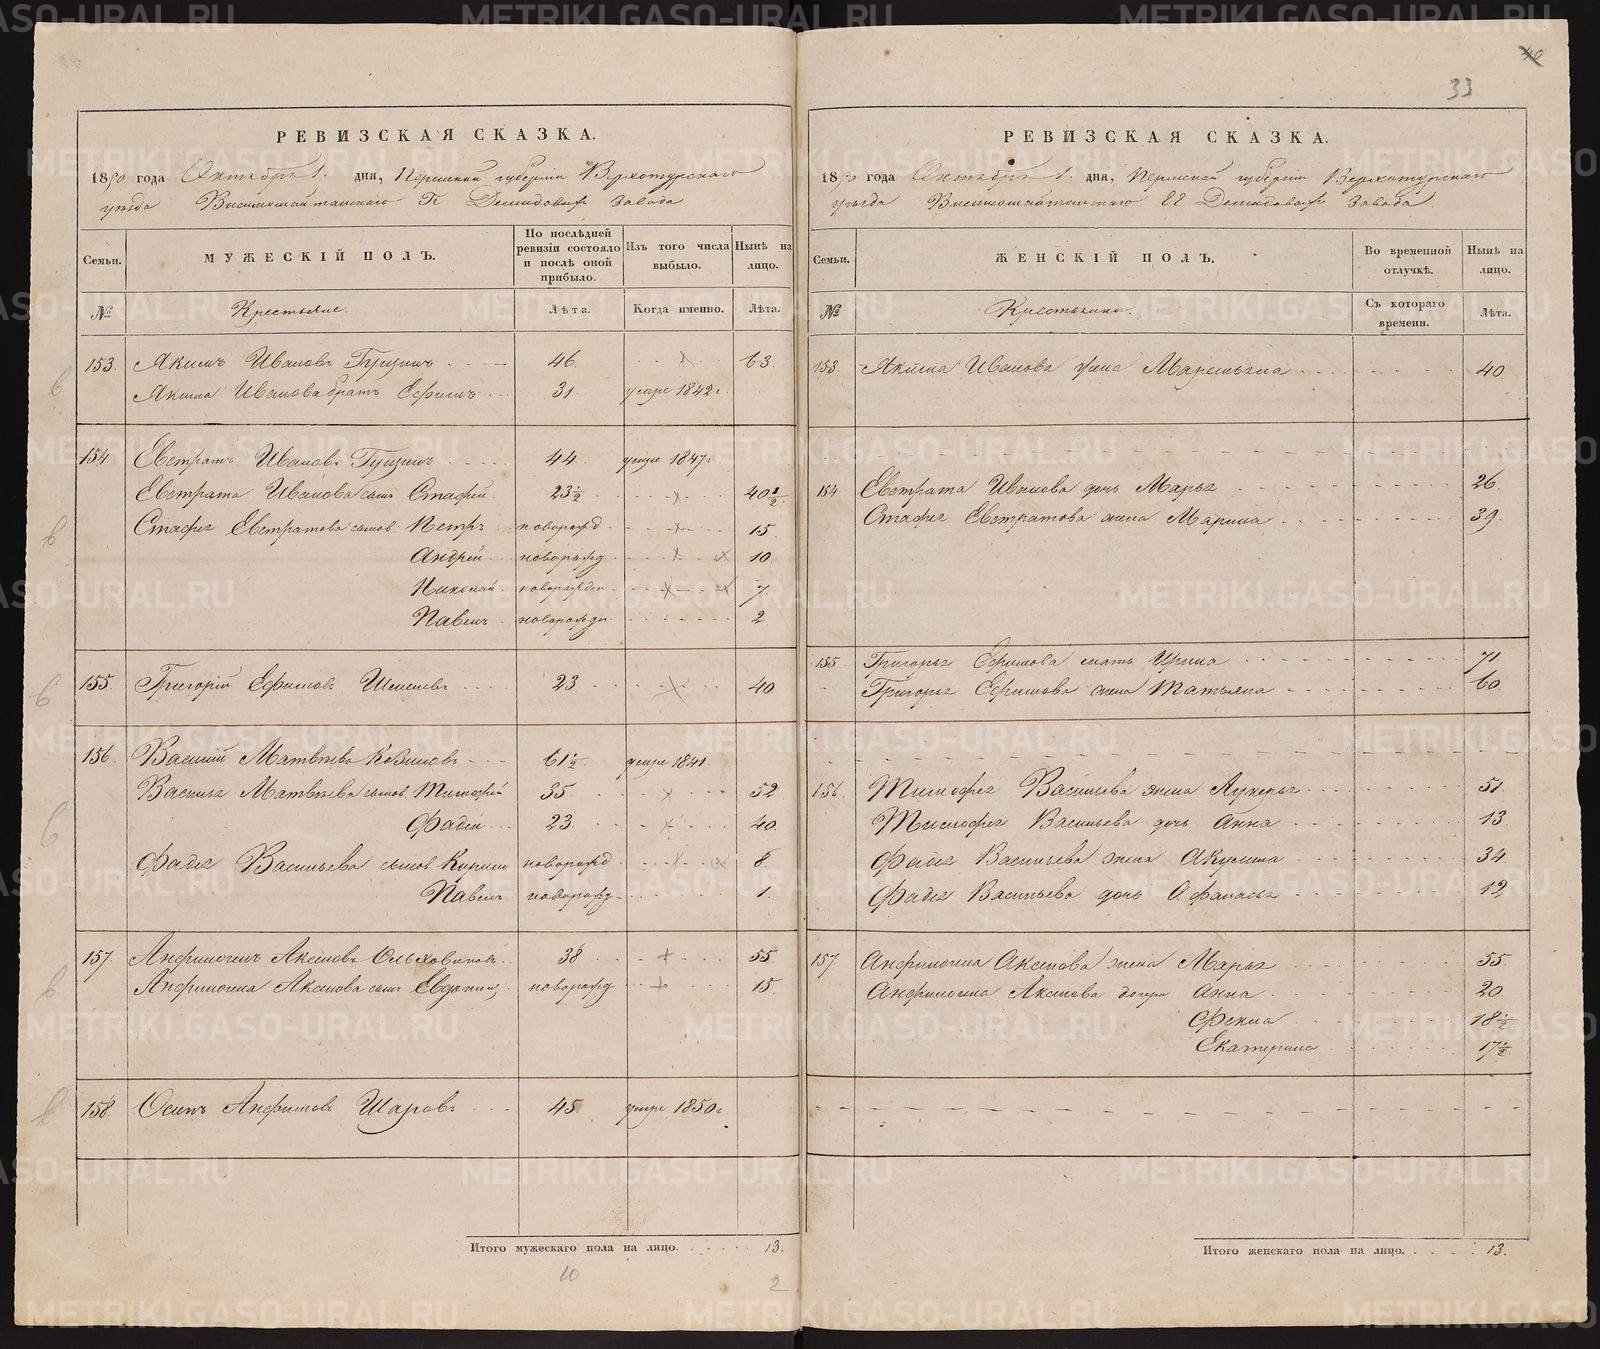 33
РЕВИЗСКАЯ СКАЗКА.
1850 года Октября 1. дня, Пермской губернiи Верхотурскаго
уезда Висимошайтанскаго Гг Демидовыхъ завода
Семьи.
МУЖЕСКІЙ ПОЛЪ.
По послѣдней ревизіи состояло и послѣ оной прибыло.
Изъ того числа выбыло.
Нынѣ на лицо.
№
Крестьяне.
Лѣта.
Когда именно.
Лѣта.
153. Якимъ Ивановъ 46. 63.
Якима Иванова братъ Ефимъ 31. умре 1842 г.
154 Евстратъ Ивановъ 44. умре 1847 г
Евстрата Иванова сынъ Стафей 23½ 40½
Стафея Евстратова сынов. Петръ новорожд 15
Андрей новорожд 10
Николай новорожден 7.
Павелъ новорожден 2
155. Григорiй Ефимовъ 23 40
156. Василiй Матвѣевъ 61½ умре 1841
Василья Матвѣева сынов. Тимофей 35. 52
Фадей 23. 40.
Фадея Васильева сынов. Кирило новорожд 8.
Павелъ новорожд 1.
157. Анфиногенъ Аксеновъ Ольховиковъ 38 55.
Анфиногена Аксенова сынъ Евдокимъ новорожд 15.
158. Осипъ Анфимовъ Шаровъ 45 умре 1850 г.
Итого мужескаго пола на лицо. 13.
10
2
РЕВИЗСКАЯ СКАЗКА.
1850 года Октября 1. дня, Пермской губернiи Верхотурскаго
уезда Висимошайтанскаго Гг Демидовыхъ завода
Семьи.
ЖЕНСКІЙ ПОЛЪ.
Во временной отлучкѣ.
Нынѣ на лицо.
№
Крестьянки.
Съ котораго времени.
Лѣта.
153. Якима Иванова жена Маремьяна 40.
154 Евстрата Иванова дочь Марья 26.
Стафея Евстратова жена Марина 39.
155. Григорья Ефимова мать Ирина 71.
Григорья Ефимова жена Татьяна 60.
156. Тимофея Васильева жена Лукерья 51.
Тимофея Васильева дочь Анна 13
Фадея Васильева жена Акулина 34.
Фадея Васильева дочь Афанасья 12
157. Анфиногена Аксенова жена Марья 55.
Анфиногена Аксенова дочери Анна 20
Фекла 18½
Екатерина 17½
Итого женскаго пола на лицо. 13.
METRIKI.GASO-URAL.RU